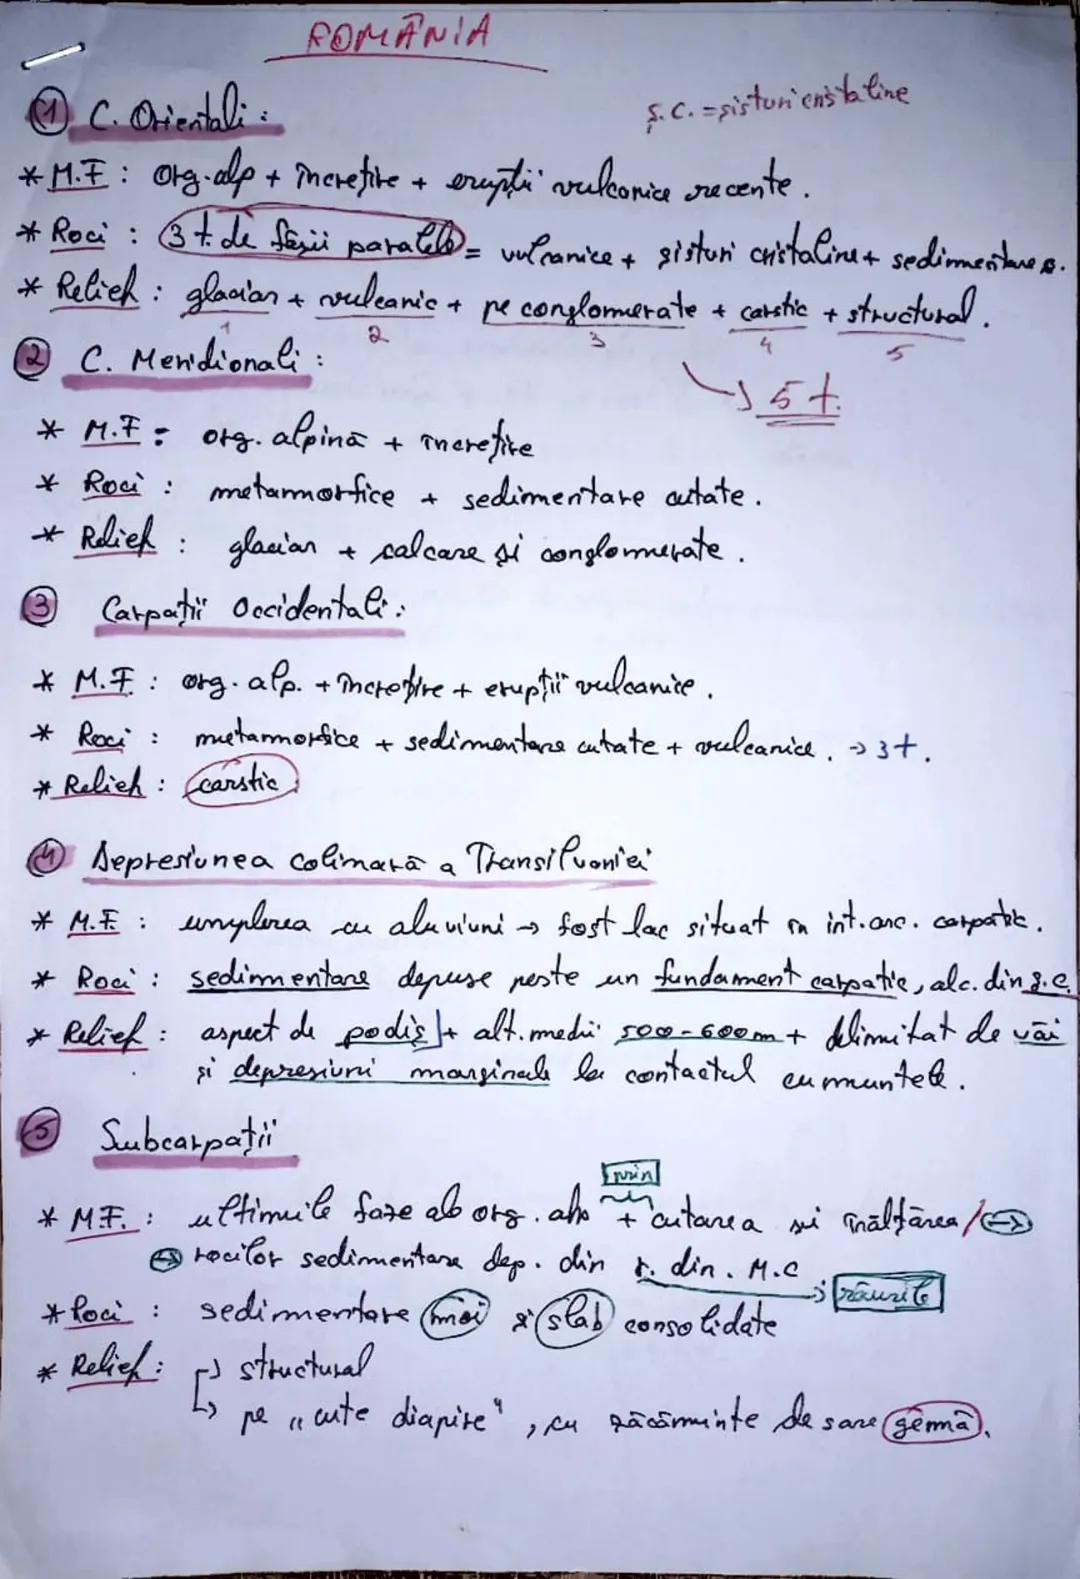 ROMÂNIA
① C. Orientali :
ș.c. = șisturi cristaline
* M.F : org. alp + încrețire + erupții vulcanice recente.
* Roci : 3 t. de fâșii paralele = vulcanice + șisturi cristaline + sedimentare.
* Relief : glaciar + vulcanic + pe conglomerate + carstic + structural.
1 2 3 4 5
→ 5 t.
② C. Meridionali :
* M.F : org. alpină + încrețire
* Roci : metamorfice + sedimentare cutate.
* Relief : glaciar + calcare și conglomerate.
③ Carpații Occidentali :
* M.F : org. alp. + încrețire + erupții vulcanice.
* Roci : metamorfice + sedimentare cutate + vulcanice. → 3 t.
* Relief : carstic
④ Depresiunea colinară a Transilvaniei
* M.F. : umplerea cu aluviuni → fost lac situat în int. arc. carpatic.
* Roci : sedimentare depuse peste un fundament carpatic, alc. din ș.c.
* Relief : aspect de podiș + alt. medii 500-600m + delimitat de văi
și depresiuni marginale la contactul cu muntele.
⑤ Subcarpații
prin
* M.F. : ultimile faze ale org. alp + cutarea și înălțarea / →
→ rocilor sedimentare dep. din r. din. M.C → râurile
* Roci : sedimentare moi și slab consolidate
* Relief : → structural
→ pe "cute diapire", cu zăcăminte de sare gemă.